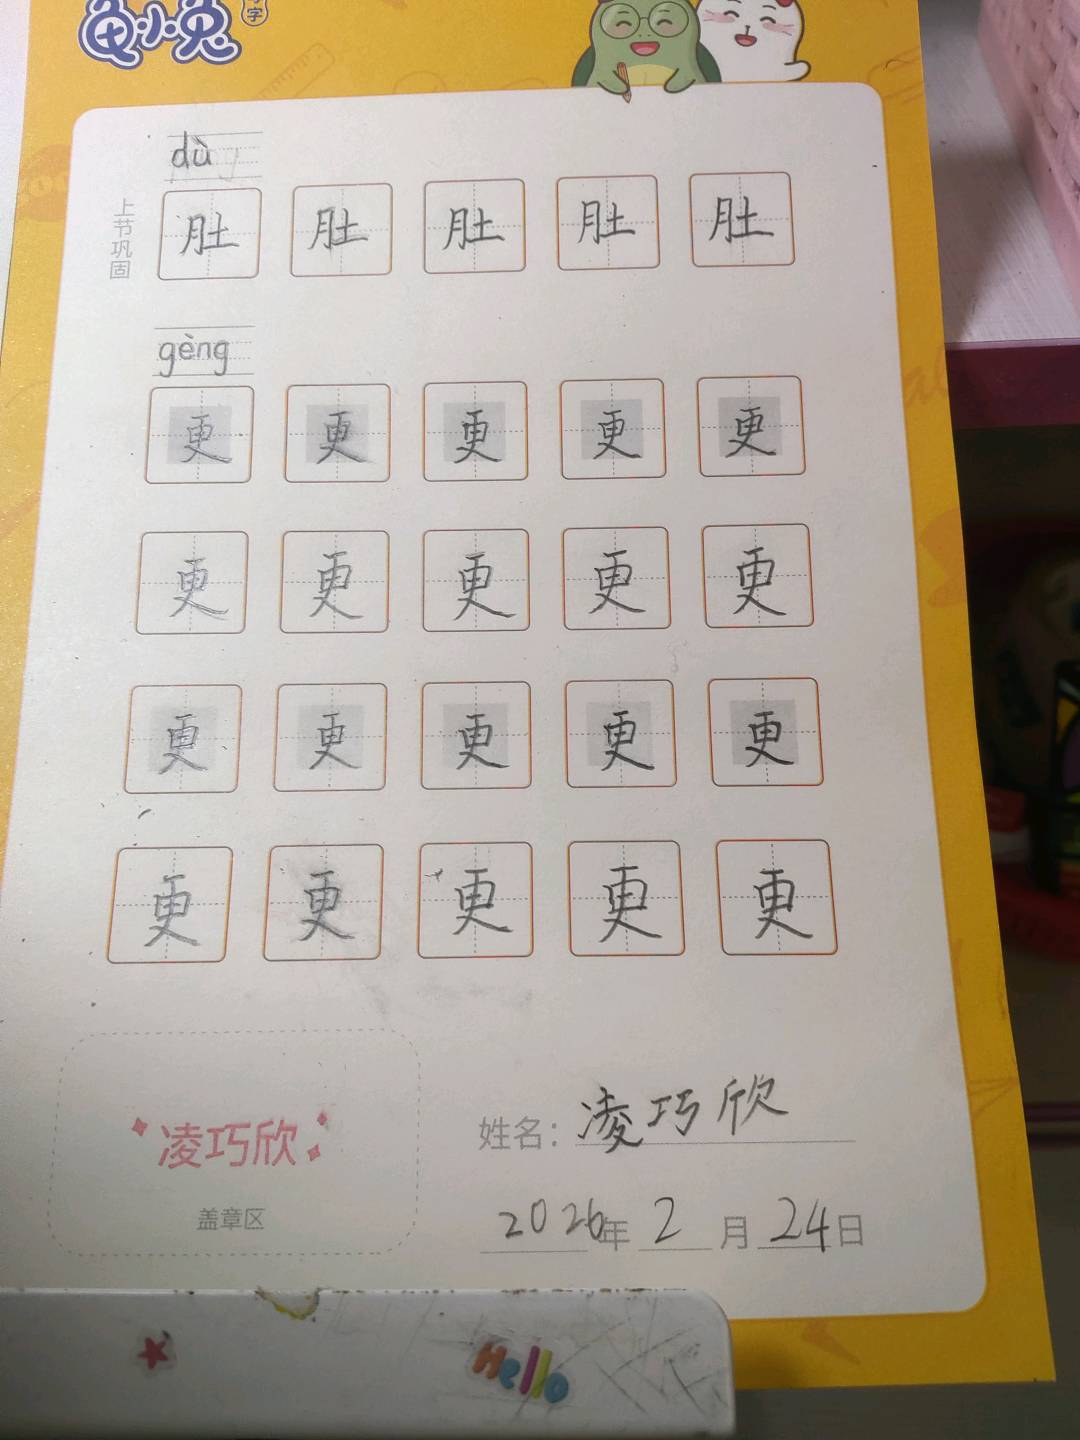 龟小兔
字
dù
上节巩固
肚 肚 肚 肚 肚
gèng
更 更 更 更 更
更 更 更 更 更
更 更 更 更 更
更 更 更 更 更
凌巧欣
盖章区
姓名：凌巧欣
2026年2月24日
Hello